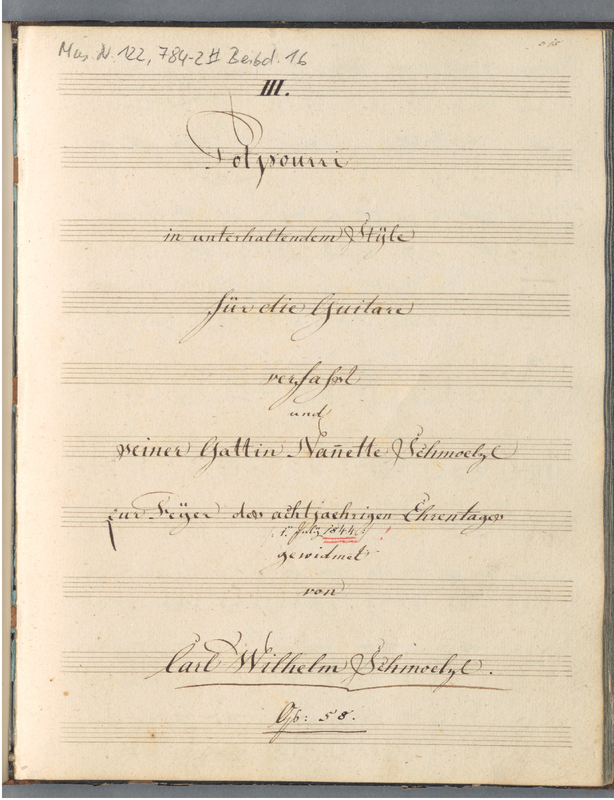 Mus. N. 122, 784-2 # Beibd. 16
III.
Potpourri
in unterhaltendem Style
für die Guitare
verfasst
und
seiner Gattin Nan̄ette Schmoelzl
zur Feÿer des achtjaehrigen Ehrentages
1. July 1844
gewidmet
von
Carl Wilhelm Schmoelzl.
Op: 58.